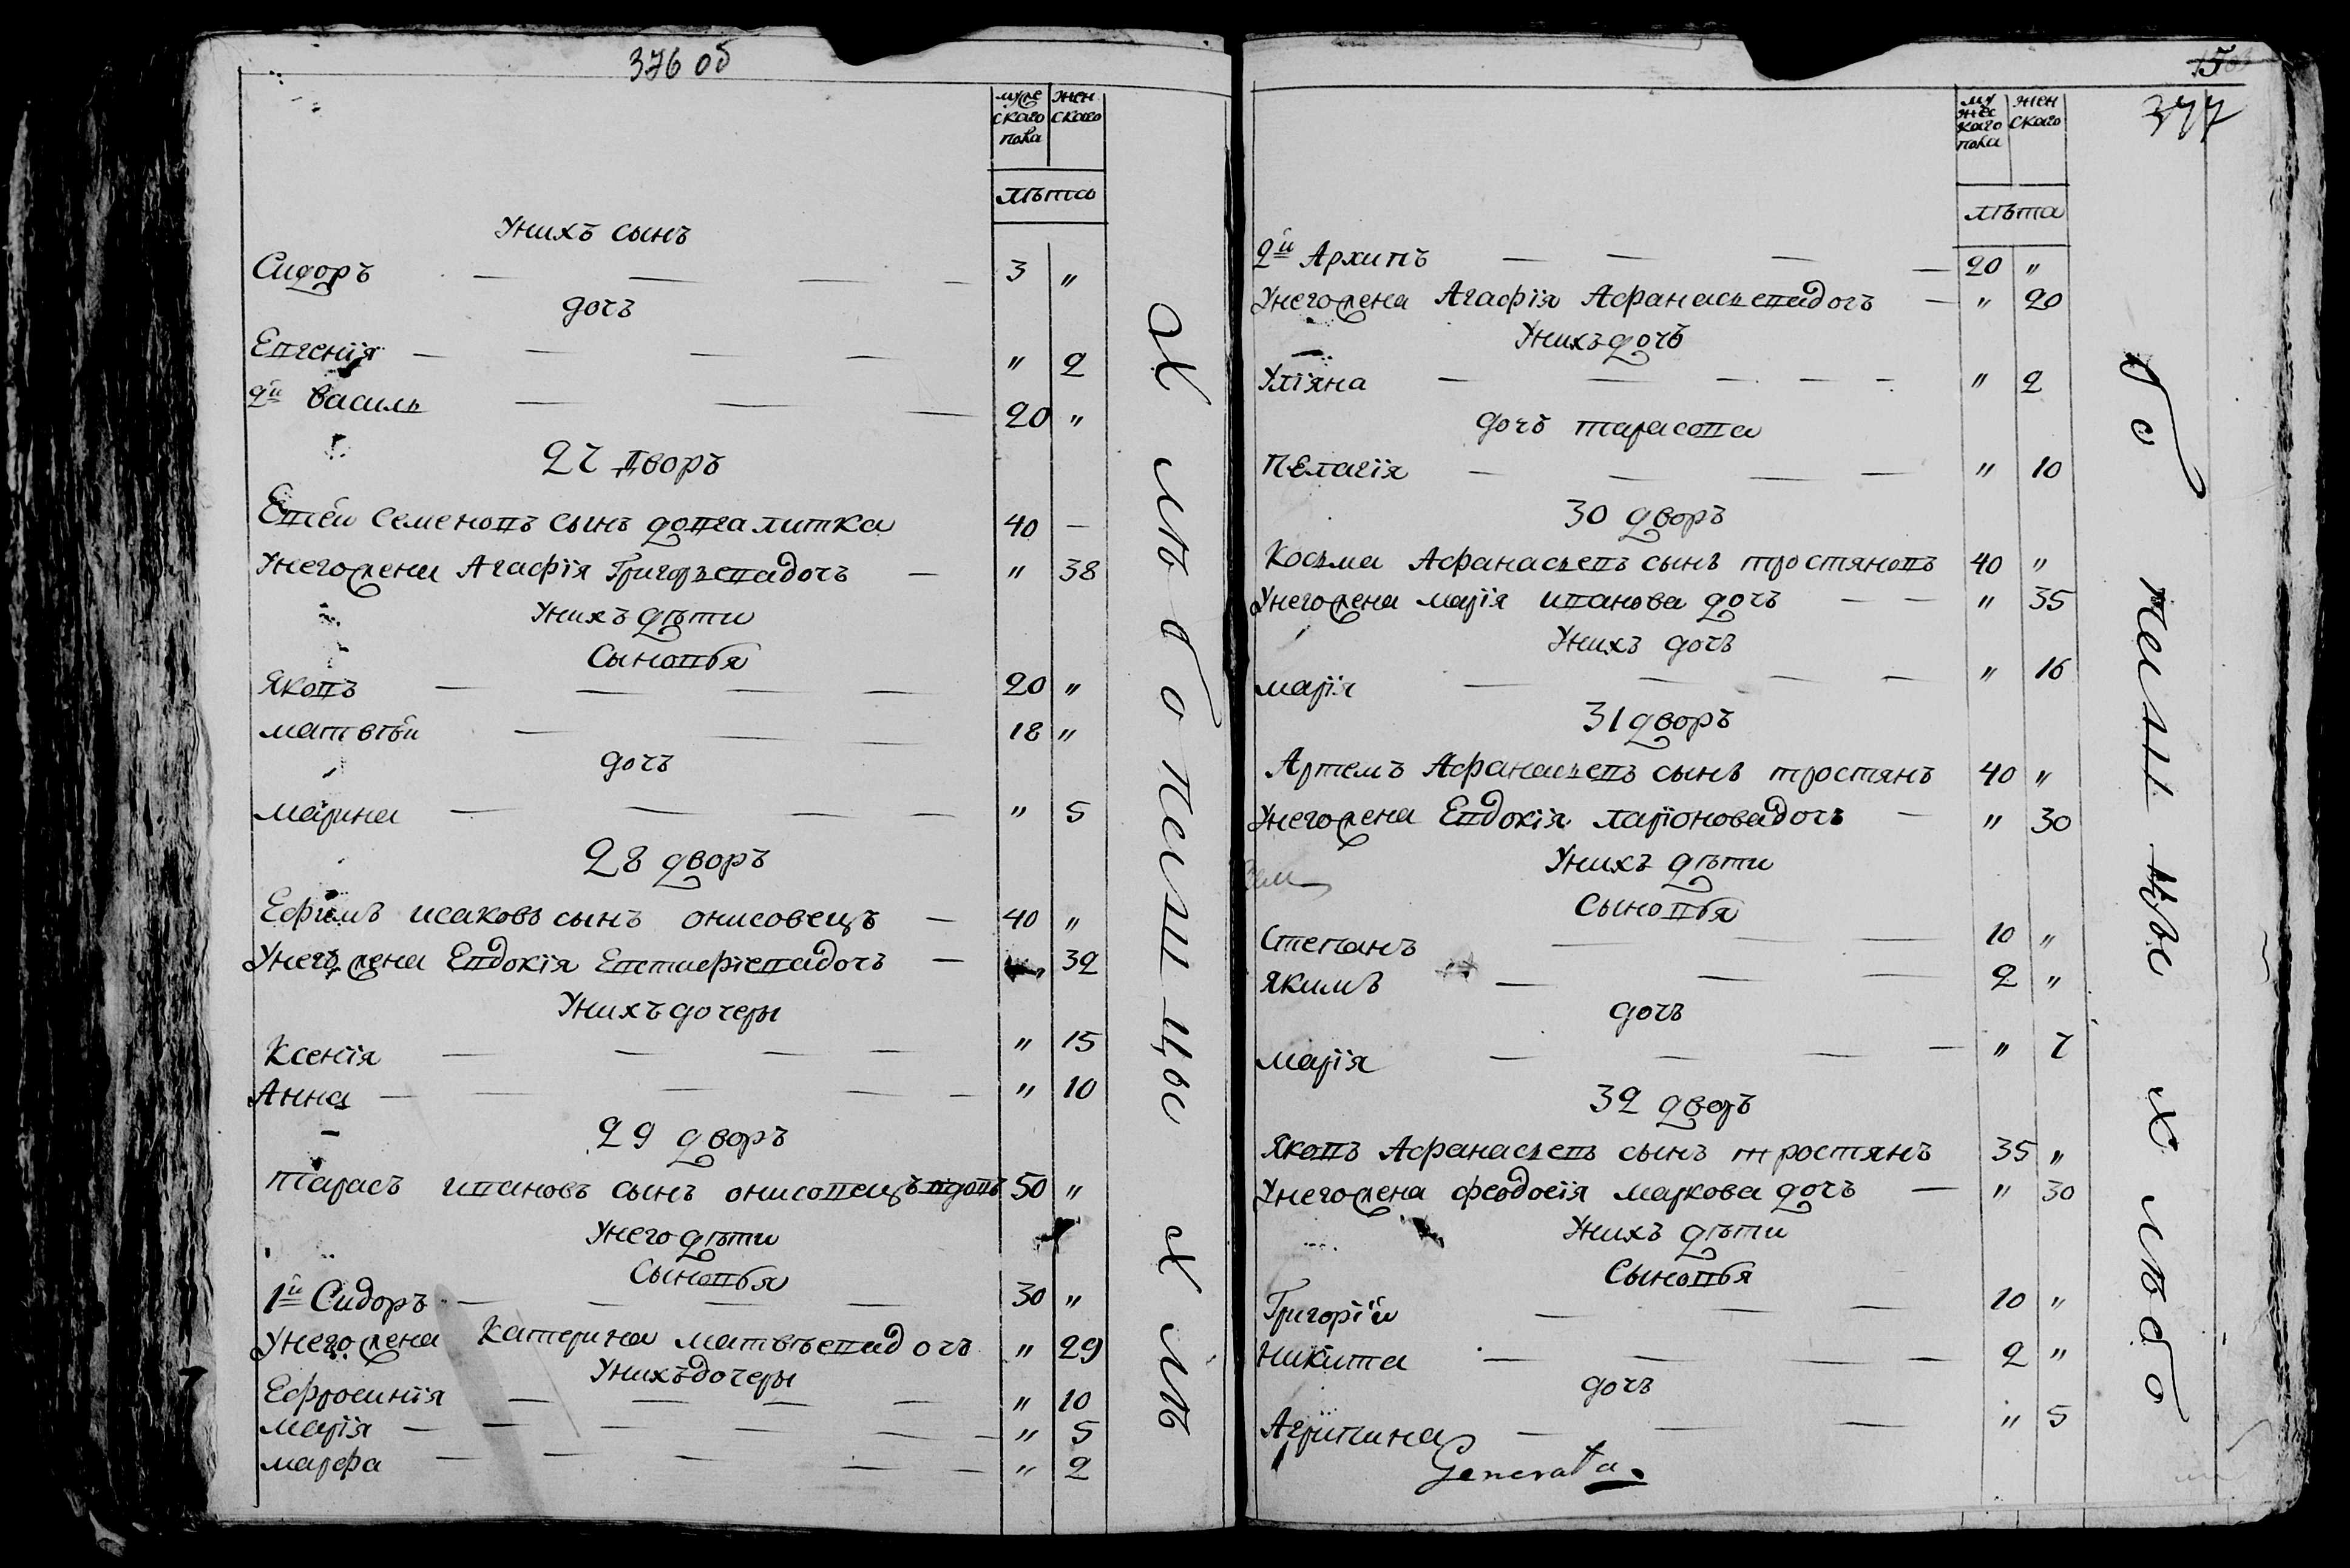 376 об
муже
скаго
пола
жен
скаго
лѣта
Унихъ сынъ
Сидоръ — — — — 3 „
дочъ
Евгенія — — — — „ 2
2й Василь — — — 20 „
27 дворъ
Евсей Семеновъ сынъ довгалитка 40 —
Унего жена Агафія Григорьевадочъ — „ 38
Унихъ дѣти
Сыновья
Яковъ — — — — 20 „
матвѣй — — — 18 „
дочъ
марина — — — — „ 5
28 дворъ
Ефимъ исаковъ сынъ онисовецъ — 40 „
Унего жена Евдокія Евстафіевадочъ — „ 32
Унихъ дочеры
Ксенія — — — — „ 15
Анна — — — — — „ 10
29 дворъ
тарасъ ивановъ сынъ онисовецъ вдовъ 50 „
Унего дѣти
Сыновья
1й Сидоръ — — — — 30 „
Унего жена Катерина матвѣевадочъ „ 29
Унихъ дочеры
Ефросинія — — — — „ 10
марія — — — — — — „ 5
марфа — — — — — „ 2
Хлѣбопашцы Хлѣ
377
му
жес
каго
пола
жен
скаго
лѣта
2й Архипъ — — — — 20 „
Унего жена Агафія Афанасьевадочъ — „ 20
Унихъ дочъ
Уліяна — — — — — „ 2
дочъ тарасова
пелагія — — — — „ 10
30 дворъ
Косьма Афанасьевъ сынъ тростяновъ 40 „
Унего жена марія иванова дочъ — — „ 35
Унихъ дочъ
марія — — — — „ 16
31 дворъ
Артемъ Афанасьевъ сынъ тростянъ 40 „
Унего жена Евдокія ларіоновадочъ — „ 30
Унихъ дѣти
Сыновья
Степанъ — — — 10 „
якимъ — — — 2 „
дочъ
марія — — — — „ 7
32 дворъ
Яковъ Афанасьевъ сынъ тростянъ 35 „
Унего жена феодосія маркова дочъ — „ 30
Унихъ дѣти
Сыновья
Григорій — — — 10 „
никита — — — — 2 „
дочъ
Агрипина — — — „ 5
Generata.
бопашцы хлѣбо